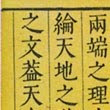 兩端之理
綸天地之
之文蓋天